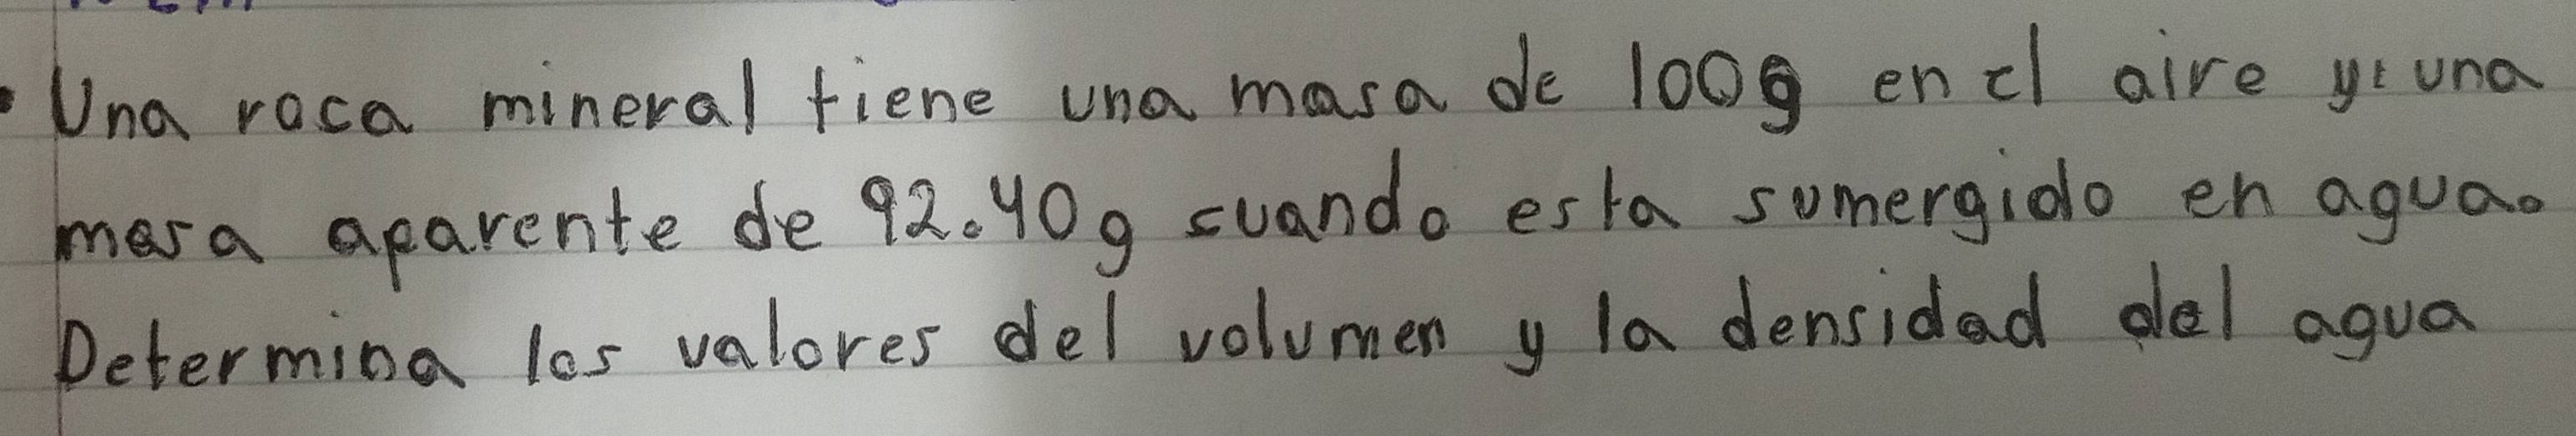 • Una roca mineral tiene una masa de 100g en el aire y una
masa aparente de 92.40g cuando esta sumergido en agua.
Determina los valores del volumen y la densidad del agua